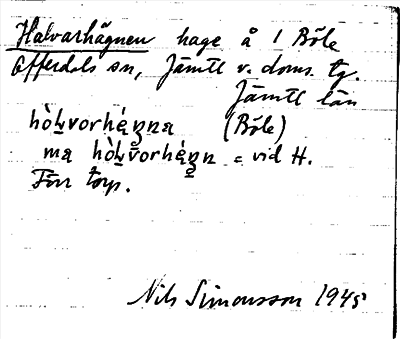 Halvarhägnen hage å 1 Böle
Offerdals sn, Jämtl v. doms. tg.
Jämtl län
hòḷvorhégna (Böle)
ma hòḷvorhégn = vid H.
F.n torp.
Nils Simonsson 1945